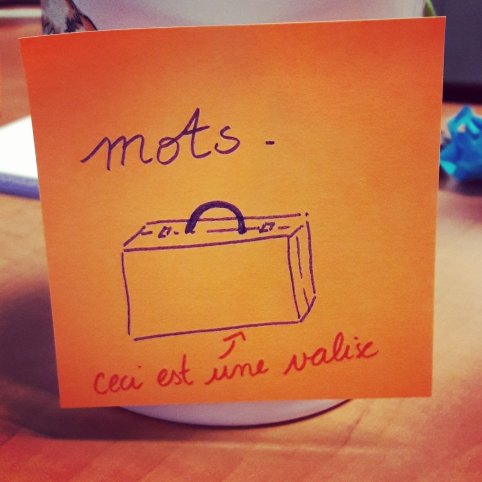 mots -
ceci est une valise